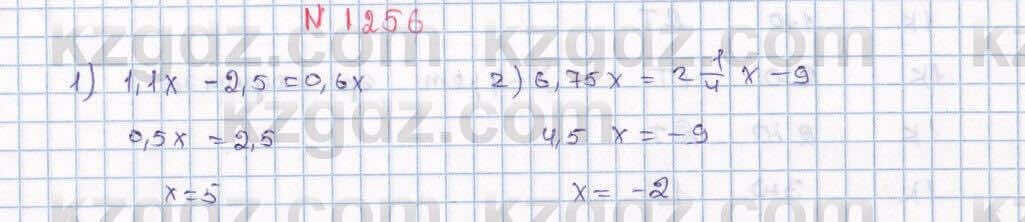 N 1256
1) 1,1x - 2,5 = 0,6x
0,5x = 2,5
x = 5
2) 6,75x = 2 1/4 x - 9
4,5 x = -9
x = -2
kzgdz.com
kzgdz.com
kzgdz.com